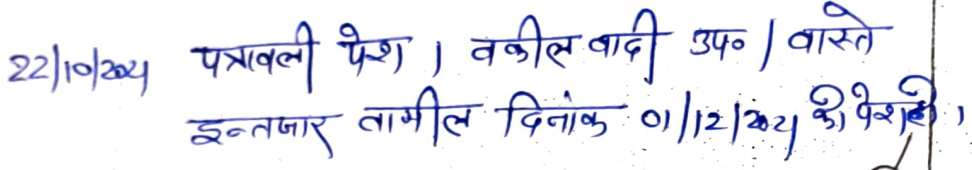 22/10/2021 पत्रावली पेश । वकील वादी उप० / वास्ते
इन्तजार तामील दिनांक 01/12/2021 को पेश हो ।